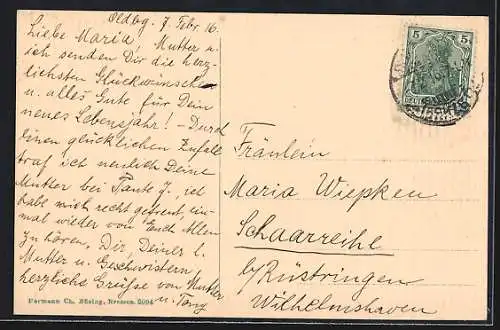 Oldbg. 7. Febr. 16.
Liebe Maria, Mutter u.
ich senden Dir die herz-
lichsten Glückwünsche
u. alles Gute für Dein
neues Lebensjahr! - Durch
einen glücklichen Zufall
traf ich neulich Deine
Mutter bei Tante J., ich
habe mich recht gefreut, ein-
mal wieder von Euch Allen
zu hören. Dir, Deiner l.
Mutter u. Geschwistern
herzliche Grüße von Mutter
u. Tony
Hermann Ch. Büsing, Bremen.
5
5
Fräulein
Maria Wiepken
Schaarreihe
b/Rüstringen
Wilhelmshaven